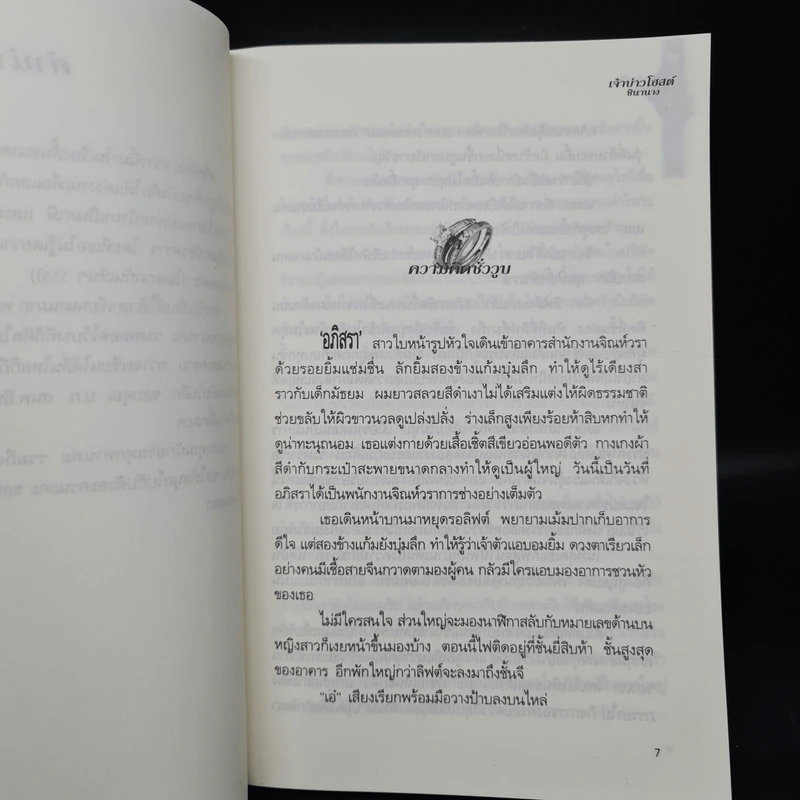 เจ้าบ่าวโฮสต์
ชินานาง
ความคิดชั่ววูบ
'อภิสรา' สาวใบหน้ารูปหัวใจเดินเข้าอาคารสำนักงานจิณห์วรา
ด้วยรอยยิ้มแช่มชื่น ลักยิ้มสองข้างแก้มบุ๋มลึก ทำให้ดูไร้เดียงสา
ราวกับเด็กมัธยม ผมยาวสลวยสีดำเงาไม่ได้เสริมแต่งให้ผิดธรรมชาติ
ช่วยขลับให้ผิวขาวนวลดูเปล่งปลั่ง ร่างเล็กสูงเพียงร้อยห้าสิบหกทำให้
ดูน่าทะนุถนอม เธอแต่งกายด้วยเสื้อเชิ้ตสีเขียวอ่อนพอดีตัว กางเกงผ้า
สีดำกับกระเป๋าสะพายขนาดกลางทำให้ดูเป็นผู้ใหญ่ วันนี้เป็นวันที่
อภิสราได้เป็นพนักงานจิณห์วราการช่างอย่างเต็มตัว
เธอเดินหน้าบานมาหยุดรอลิฟต์ พยายามเม้มปากเก็บอาการ
ดีใจ แต่สองข้างแก้มยังบุ๋มลึก ทำให้รู้ว่าเจ้าตัวแอบอมยิ้ม ดวงตาเรียวเล็ก
อย่างคนมีเชื้อสายจีนกวาดตามองผู้คน กลัวมีใครแอบมองอาการชวนหัว
ของเธอ
ไม่มีใครสนใจ ส่วนใหญ่จะมองนาฬิกาสลับกับหมายเลขด้านบน
หญิงสาวก็เงยหน้าขึ้นมองบ้าง ตอนนี้ไฟติดอยู่ที่ชั้นยี่สิบห้า ชั้นสูงสุด
ของอาคาร อีกพักใหญ่กว่าลิฟต์จะลงมาถึงชั้นจี
"เอ๋" เสียงเรียกพร้อมมือวางป้าบลงบนไหล่
7